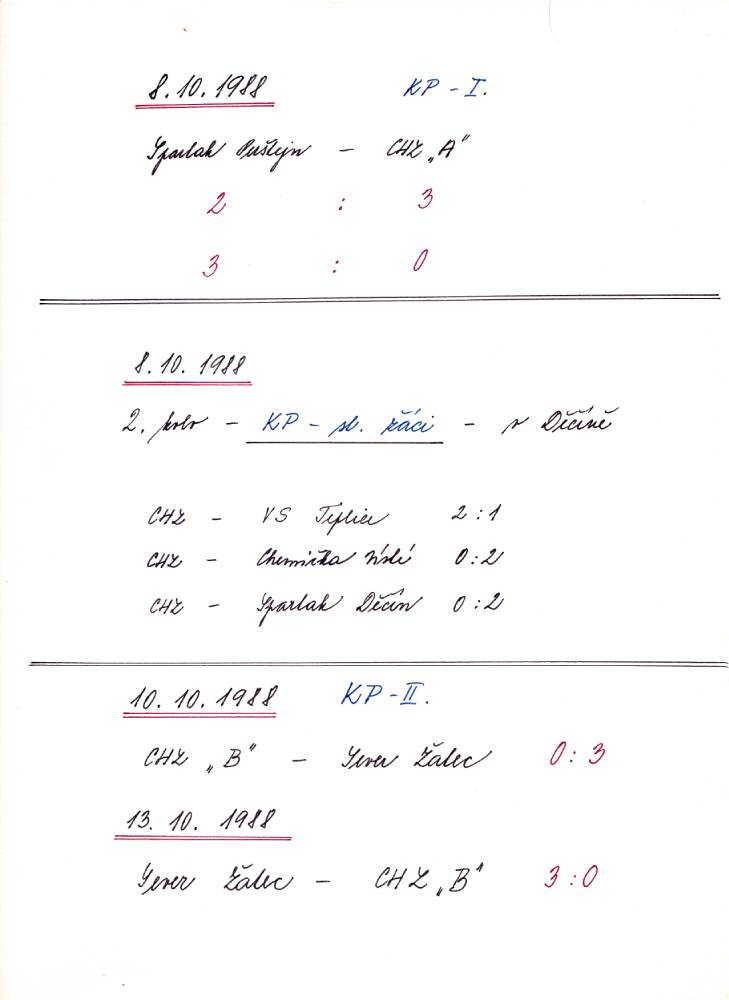 8.10.1988 KP - I.
Spartak Perštejn - CHZ „A"
2 : 3
3 : 0
8.10.1988
2. kolo - KP - st. žáci - v Děčíně
CHZ - VS Teplice 2:1
CHZ - Chemička Ústí 0:2
CHZ - Spartak Děčín 0:2
10.10.1988 KP - II.
CHZ „B" - Sever Žatec 0:3
13.10.1988
Sever Žatec - CHZ „B" 3:0